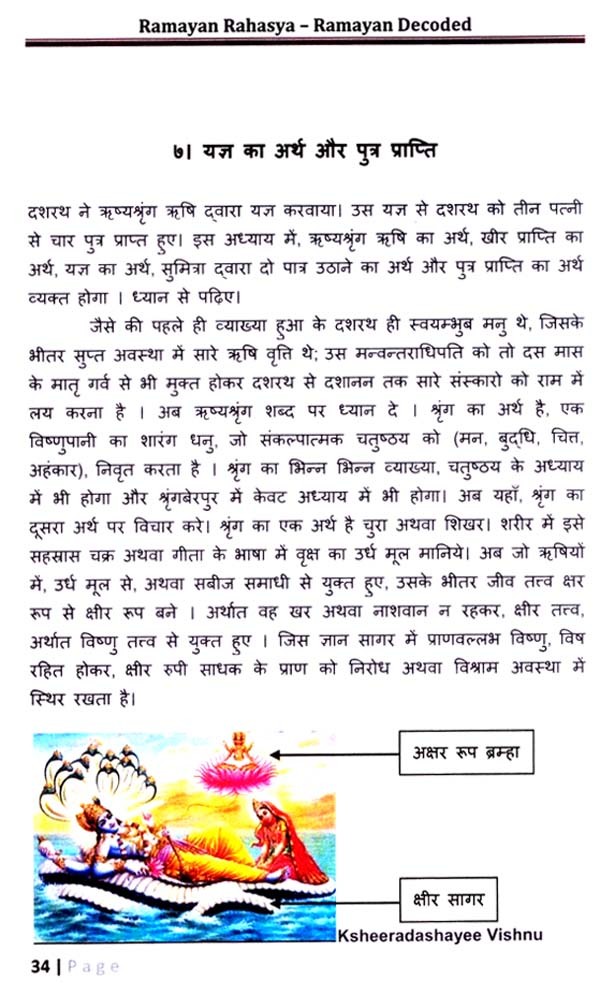 Ramayan Rahasya – Ramayan Decoded
७। यज्ञ का अर्थ और पुत्र प्राप्ति
दशरथ ने ऋष्यश्रृंग ऋषि द्वारा यज्ञ करवाया। उस यज्ञ से दशरथ को तीन पत्नी
से चार पुत्र प्राप्त हुए। इस अध्याय में, ऋष्यश्रृंग ऋषि का अर्थ, खीर प्राप्ति का
अर्थ, यज्ञ का अर्थ, सुमित्रा द्वारा दो पात्र उठाने का अर्थ और पुत्र प्राप्ति का अर्थ
व्यक्त होगा । ध्यान से पढ़िए।
जैसे की पहले ही व्याख्या हुआ के दशरथ ही स्वयम्भुब मनु थे, जिसके
भीतर सुप्त अवस्था में सारे ऋषि वृत्ति थे; उस मन्वन्तराधिपति को तो दस मास
के मातृ गर्व से भी मुक्त होकर दशरथ से दशानन तक सारे संस्कारो को राम में
लय करना है । अब ऋष्यश्रृंग शब्द पर ध्यान दे । श्रृंग का अर्थ है, एक
विष्णुपानी का शारंग धनु, जो संकल्पात्मक चतुष्ठय को (मन, बुद्धि, चित्त,
अहंकार), निवृत करता है । श्रृंग का भिन्न भिन्न व्याख्या, चतुष्ठय के अध्याय
में भी होगा और श्रृंगबेरपुर में केवट अध्याय में भी होगा। अब यहाँ, श्रृंग का
दूसरा अर्थ पर विचार करे। श्रृंग का एक अर्थ है चुरा अथवा शिखर। शरीर में इसे
सहस्रास चक्र अथवा गीता के भाषा में वृक्ष का उर्ध मूल मानिये। अब जो ऋषियों
में, उर्ध मूल से, अथवा सबीज समाधी से युक्त हुए, उसके भीतर जीव तत्त्व क्षर
रूप से क्षीर रूप बने । अर्थात वह खर अथवा नाशवान न रहकर, क्षीर तत्त्व,
अर्थात विष्णु तत्त्व से युक्त हुए । जिस ज्ञान सागर में प्राणवल्लभ विष्णु, विष
रहित होकर, क्षीर रुपी साधक के प्राण को निरोध अथवा विश्राम अवस्था में
स्थिर रखता है।
अक्षर रूप ब्रम्हा
क्षीर सागर
Ksheeradashayee Vishnu
34 | Page